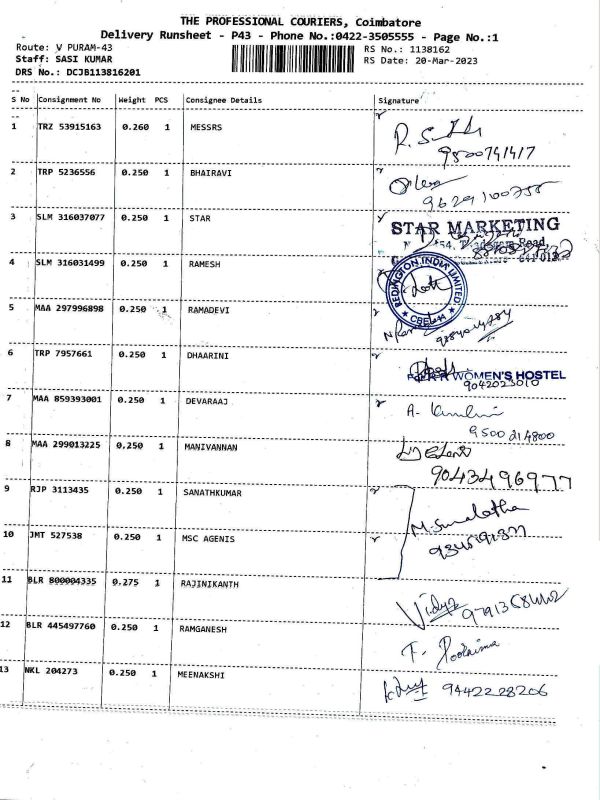 THE PROFESSIONAL COURIERS, Coimbatore
Delivery Runsheet - P43 - Phone No.:0422-3505555 - Page No.:1
Route: V PURAM-43 RS No.: 1138162
Staff: SASI KUMAR RS Date: 20-Mar-2023
DRS No.: DCJB113816201
S No Consignment No Weight PCS Consignee Details Signature
1 TRZ 53915163 0.260 1 MESSRS
2 TRP 5236556 0.250 1 BHAIRAVI
3 SLM 316037077 0.250 1 STAR
STAR MARKETING
4 SLM 316031499 0.250 1 RAMESH
REDINGTON INDIA LIMITED
5 MAA 297996898 0.250 1 RAMADEVI
6 TRP 7957661 0.250 1 DHAARINI
WOMEN'S HOSTEL
9042023010
7 MAA 859393001 0.250 1 DEVARAAJ
9500214800
8 MAA 299013225 0.250 1 MANIVANNAN
9043496977
9 RJP 3113435 0.250 1 SANATHKUMAR
10 JMT 527538 0.250 1 MSC AGENIS
11 BLR 800004335 0.275 1 RAJINIKANTH
Vidya
12 BLR 445497760 0.250 1 RAMGANESH
13 NKL 204273 0.250 1 MEENAKSHI
9442228206